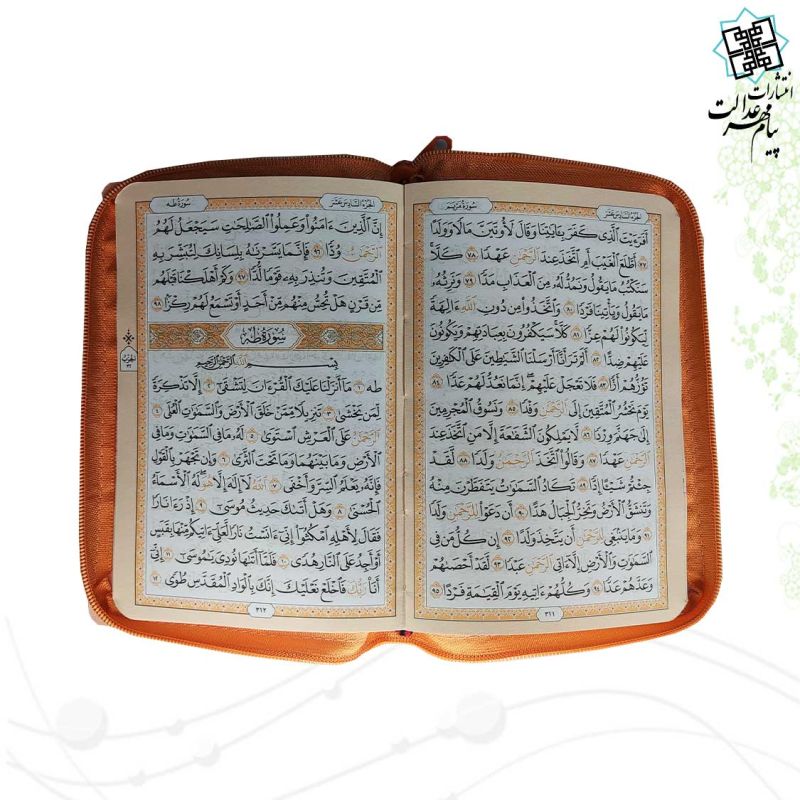 انتشارات
پیام مهر عدالت
الجزء السادس عشر سورة مريم
أَفَرَءَيْتَ ٱلَّذِى كَفَرَ بِـَٔايَٰتِنَا وَقَالَ لَأُوتَيَنَّ مَالًا وَوَلَدًا
٧٧ أَطَّلَعَ ٱلْغَيْبَ أَمِ ٱتَّخَذَ عِندَ ٱلرَّحْمَٰنِ عَهْدًا ٧٨ كَلَّا
سَنَكْتُبُ مَا يَقُولُ وَنَمُدُّ لَهُۥ مِنَ ٱلْعَذَابِ مَدًّا ٧٩ وَنَرِثُهُۥ
مَا يَقُولُ وَيَأْتِينَا فَرْدًا ٨٠ وَٱتَّخَذُوا۟ مِن دُونِ ٱللَّهِ ءَالِهَةً
لِّيَكُونُوا۟ لَهُمْ عِزًّا ٨١ كَلَّا سَيَكْفُرُونَ بِعِبَادَتِهِمْ وَيَكُونُونَ
عَلَيْهِمْ ضِدًّا ٨٢ أَلَمْ تَرَ أَنَّا أَرْسَلْنَا ٱلشَّيَٰطِينَ عَلَى ٱلْكَٰفِرِينَ
تَؤُزُّهُمْ أَزًّا ٨٣ فَلَا تَعْجَلْ عَلَيْهِمْ إِنَّمَا نَعُدُّ لَهُمْ عَدًّا ٨٤
يَوْمَ نَحْشُرُ ٱلْمُتَّقِينَ إِلَى ٱلرَّحْمَٰنِ وَفْدًا ٨٥ وَنَسُوقُ ٱلْمُجْرِمِينَ
إِلَىٰ جَهَنَّمَ وِرْدًا ٨٦ لَّا يَمْلِكُونَ ٱلشَّفَٰعَةَ إِلَّا مَنِ ٱتَّخَذَ عِندَ
ٱلرَّحْمَٰنِ عَهْدًا ٨٧ وَقَالُوا۟ ٱتَّخَذَ ٱلرَّحْمَٰنُ وَلَدًا ٨٨ لَّقَدْ
جِئْتُمْ شَيْـًٔا إِدًّا ٨٩ تَكَادُ ٱلسَّمَٰوَٰتُ يَتَفَطَّرْنَ مِنْهُ
وَتَنشَقُّ ٱلْأَرْضُ وَتَخِرُّ ٱلْجِبَالُ هَدًّا ٩٠ أَن دَعَوْا۟ لِلرَّحْمَٰنِ وَلَدًا
٩١ وَمَا يَنۢبَغِى لِلرَّحْمَٰنِ أَن يَتَّخِذَ وَلَدًا ٩٢ إِن كُلُّ مَن فِى
ٱلسَّمَٰوَٰتِ وَٱلْأَرْضِ إِلَّآ ءَاتِى ٱلرَّحْمَٰنِ عَبْدًا ٩٣ لَّقَدْ أَحْصَىٰهُمْ
وَعَدَّهُمْ عَدًّا ٩٤ وَكُلُّهُمْ ءَاتِيهِ يَوْمَ ٱلْقِيَٰمَةِ فَرْدًا ٩٥
٣١١
الجزء السادس عشر سورة طه
إِنَّ ٱلَّذِينَ ءَامَنُوا۟ وَعَمِلُوا۟ ٱلصَّٰلِحَٰتِ سَيَجْعَلُ لَهُمُ
ٱلرَّحْمَٰنُ وُدًّا ٩٦ فَإِنَّمَا يَسَّرْنَٰهُ بِلِسَانِكَ لِتُبَشِّرَ بِهِ
ٱلْمُتَّقِينَ وَتُنذِرَ بِهِۦ قَوْمًا لُّدًّا ٩٧ وَكَمْ أَهْلَكْنَا قَبْلَهُم
مِّن قَرْنٍ هَلْ تُحِسُّ مِنْهُم مِّنْ أَحَدٍ أَوْ تَسْمَعُ لَهُمْ رِكْزًۢا ٩٨
سُورَةُ طه
بِسْمِ ٱللَّهِ ٱلرَّحْمَٰنِ ٱلرَّحِيمِ
طه ١ مَآ أَنزَلْنَا عَلَيْكَ ٱلْقُرْءَانَ لِتَشْقَىٰٓ ٢ إِلَّا تَذْكِرَةً
لِّمَن يَخْشَىٰ ٣ تَنزِيلًا مِّمَّنْ خَلَقَ ٱلْأَرْضَ وَٱلسَّمَٰوَٰتِ ٱلْعُلَى ٤
ٱلرَّحْمَٰنُ عَلَى ٱلْعَرْشِ ٱسْتَوَىٰ ٥ لَهُۥ مَا فِى ٱلسَّمَٰوَٰتِ وَمَا فِى
ٱلْأَرْضِ وَمَا بَيْنَهُمَا وَمَا تَحْتَ ٱلثَّرَىٰ ٦ وَإِن تَجْهَرْ بِٱلْقَوْلِ
فَإِنَّهُۥ يَعْلَمُ ٱلسِّرَّ وَأَخْفَى ٧ ٱللَّهُ لَآ إِلَٰهَ إِلَّا هُوَ لَهُ ٱلْأَسْمَآءُ
ٱلْحُسْنَىٰ ٨ وَهَلْ أَتَىٰكَ حَدِيثُ مُوسَىٰٓ ٩ إِذْ رَءَا نَارًا
فَقَالَ لِأَهْلِهِ ٱمْكُثُوٓا۟ إِنِّىٓ ءَانَسْتُ نَارًا لَّعَلِّىٓ ءَاتِيكُم مِّنْهَا بِقَبَسٍ
أَوْ أَجِدُ عَلَى ٱلنَّارِ هُدًى ١٠ فَلَمَّآ أَتَىٰهَا نُودِىَ يَٰمُوسَىٰٓ ١١ إِنِّىٓ
أَنَا۠ رَبُّكَ فَٱخْلَعْ نَعْلَيْكَ إِنَّكَ بِٱلْوَادِ ٱلْمُقَدَّسِ طُوًى ١٢
٣١٢
الحزب
٣٢